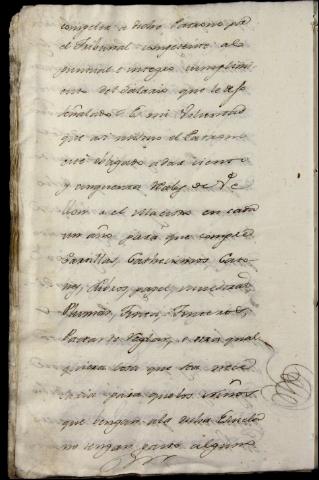 competer a dicho Patrono por
el Tribunal competente al
puntual e integro cumplimi
ento del salario que le es
señalado. Es mi voluntad
que asi mismo el Patrono
este obligado a dar ciento
y cinquenta Rales de Ve
llon a el Maestro en cada
un año para que compre
Cartillas, Cathecismos, Cato
nes, Libros, papel, muestras
Plumas, Tinta, Tinteros,
Pautas de reglar, o otra qual
quiera cosa que sea nece
saria para que los niños
que vengan a la dicha Escuela
no tengan gasto alguno